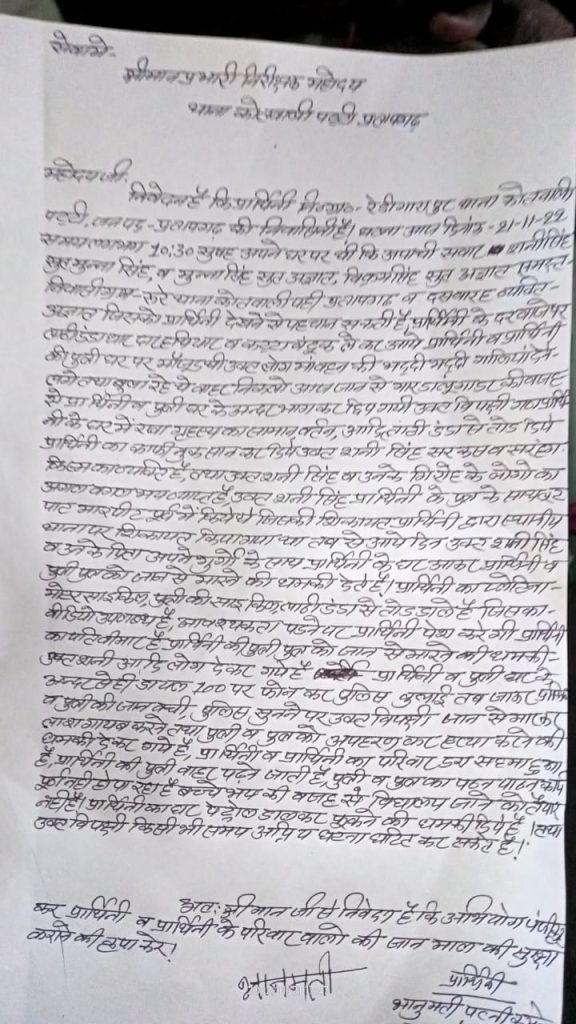 सेवामे-
श्रीमान प्रभारी निरीक्षक महोदय
थाना कोतवाली पट्टी प्रतापगढ़
महोदय जी,
निवेदन है कि प्रार्थिनी ग्राम- थाना कोतवाली
पट्टी, जनपद- प्रतापगढ़ की निवासिनी है। घटना आज दिनांक-21-11-22
समय लगभग 10:30 सुबह अपने घर पर थी कि अपाची सवार शनी सिंह
सुत मुन्ना सिंह, व मुन्ना सिंह सुत अज्ञात, विक्रम सिंह सुत अज्ञात समस्त
निवासी ग्राम- थाना कोतवाली पट्टी प्रतापगढ़ व दस बारह व्यक्ति-
अज्ञात जिसको प्रार्थिनी देखने से पहचान सकती है, प्रार्थिनी के दरवाजे पर
लाठी डंडा व कट्टा बंदूक लेकर आये प्रार्थिनी व प्रार्थिनी
की पुत्री घर पर मौजूद थी उक्त लोग की भद्दी भद्दी गालियां देने-
लगे तथा कह रहे थे बाहर निकलो आज जान से मार डालूंगा डर की वजह
से प्रार्थिनी व पुत्री घर के अन्दर भागकर छिप गयी उक्त विपक्षी गण प्रार्थि
नी के घर में रखा गृहस्थ का सामान बर्तन, आदि लाठी डंडा से तोड़ दिये
प्रार्थिनी का काफी नुकसान कर दिये उक्त शनी सिंह सरकस व सरहंग
किस्म का व्यक्ति है, तथा उक्त शनी सिंह व उनके गिरोह के लोगो का
अगल बगल भय व्याप्त है, उक्त शनी सिंह प्रार्थिनी के पुत्र के साथ
मारपीट पूर्व में किये थे जिसकी शिकायत प्रार्थिनी द्वारा स्थानीय
थाना पर शिकायत किया गया था तब से आये दिन उक्त शनी सिंह
व उनके पिता अपने गुर्गो के साथ प्रार्थिनी के घर आकर प्रार्थिनी व
पुत्री पुत्र को जान से मारने की धमकी देते है। प्रार्थिनी का
मोटर साइकिल, पुत्री की साइकिल लाठी डंडा से तोड़ डाले है जिसका-
वीडियो उपलब्ध है, आवश्यकता पड़ने पर प्रार्थिनी पेश करेगी प्रार्थिनी
का पति बीमार है, प्रार्थिनी की पुत्री पुत्र को जान से मारने की धमकी-
उक्त शनी आदि लोग देकर गये है प्रार्थिनी व पुत्री घर के
अन्दर से ही डायल 100 पर फोन कर पुलिस बुलाई तब जाकर प्रार्थिनी
व पुत्री की जान बची, पुलिस सुनने पर उक्त विपक्षी जान से मारकर
लाश गायब करने तथा पुत्री व पुत्र को अपहरण कर हत्या करने की
धमकी देकर गये है, प्रार्थिनी व प्रार्थिनी का परिवार डरा सहमा हुआ
है, प्रार्थिनी की पुत्री बाहर पढ़ने जाती है, पुत्री व पुत्र का पठन पाठन कार्य
पूर्ण नही हो पा रहा है बच्चे भय की वजह से विद्यालय जाने को तैयार
नही है। प्रार्थिनी का घर पेट्रोल डालकर फूकने की धमकी दिये है। तथा
उक्त विपक्षी किसी भी समय अप्रिय घटना घटित कर सकते है।
अतः श्रीमान जी से निवेदन है कि अभियोग पंजीकृत
कर प्रार्थिनी व प्रार्थिनी के परिवार वालो की जान माल की सुरक्षा
कराने की कृपा करे।
भानमती
प्रार्थिनी
भानुमती पत्नी